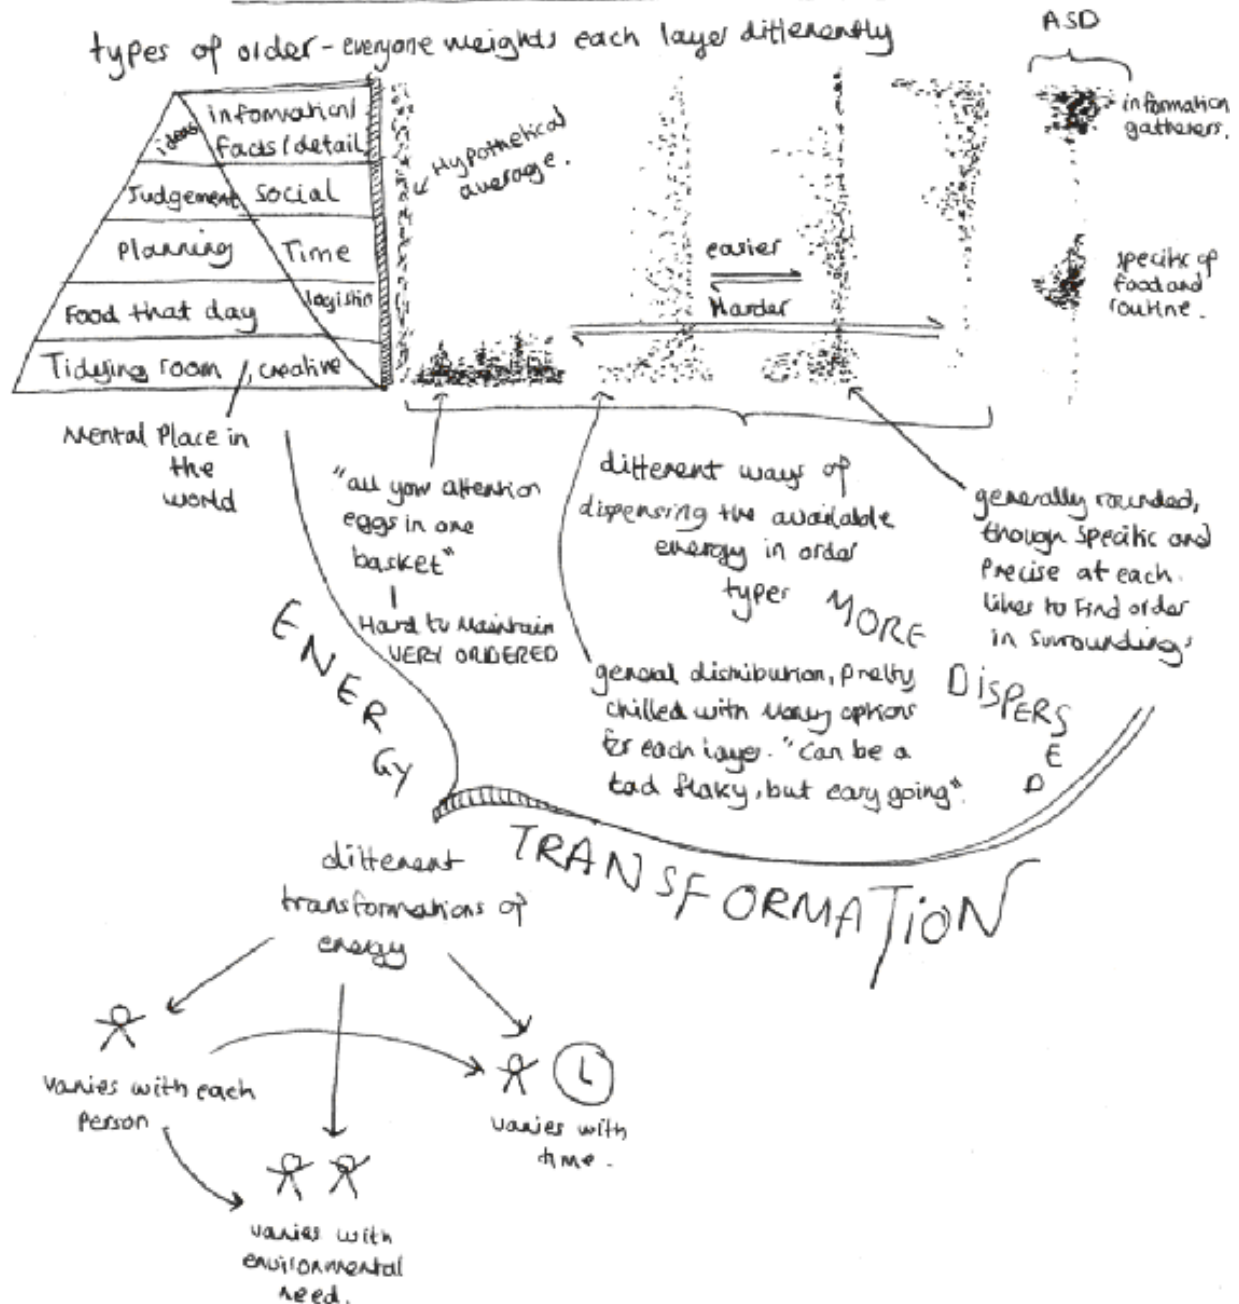 types of order - everyone weights each layer differently
ASD
ideas
information/
facts/detail
Judgement
social
Planning
Time
Food that day
logistic
Tidying room
, creative
Mental Place in
the
world
Hypothetical
average.
easier
Harder
information
gatherers.
specific of
food and
routine.
"all your attention
eggs in one
basket"
Hard to maintain
VERY ORDERED
different ways of
dispensing the available
energy in order
types
generally rounded,
though specific and
precise at each.
likes to find order
in surroundings
general distribution, pretty
chilled with many options
for each layer. "can be a
tad flaky, but easy going"
MORE
DISPERSED
ENERGY
TRANSFORMATION
different
transformations of
energy
varies with each
person
varies with
time.
varies with
environmental
need.